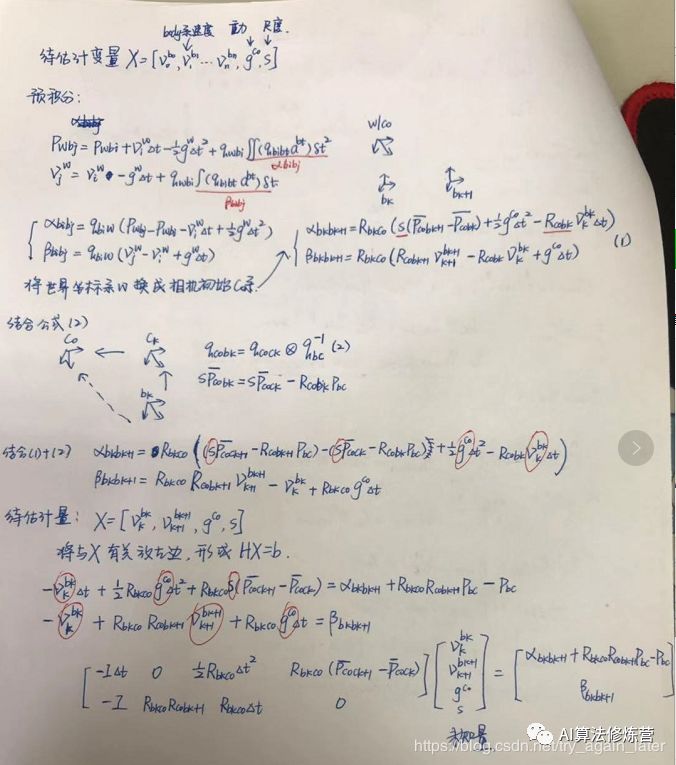 body系速度 重力 尺度.
待估计变量 X=[v_0^{b_0}, v_1^{b_1} ... v_n^{b_n}, g^{c_0}, s]
预积分:
P_{wbj} = P_{wbi} + v_i^w Δt - ½g^wΔt² + q_{wbi}∬(q_{bibt} a^{bt})δt²
α_{bibj}
w/c_0
v_j^w = v_i^w - g^wΔt + q_{wbi}∫(q_{bibt} a^{bt})δt
β_{bibj}
b_k b_{k+1}
{ α_{bibj} = q_{biw}(P_{wbj} - P_{wbi} - v_i^wΔt + ½g^wΔt²)
β_{bibj} = q_{biw}(v_j^w - v_i^w + g^wΔt)
{ α_{bkbk+1} = R_{bkc_0}(s(P̄_{c_0bk+1} - P̄_{c_0bk}) + ½g^{c_0}Δt² - R_{c_0bk} v_k^{bk}Δt) (1)
β_{bkbk+1} = R_{bkc_0}(R_{c_0bk+1} v_{k+1}^{bk+1} - R_{c_0bk} v_k^{bk} + g^{c_0}Δt)
将世界坐标系w换成相机初始C_0系.
结合公式(2)
C_0 C_k
b_k
q_{c_0bk} = q_{c_0ck} ⊗ q_{bc}^{-1} (2)
sP̄_{c_0bk} = sP̄_{c_0ck} - R_{c_0bk} P_{bc}
结合(1)+(2) α_{bkbk+1} = R_{bkc_0}((sP̄_{c_0ck+1} - R_{c_0bk+1} P_{bc}) - (sP̄_{c_0ck} - R_{c_0bk} P_{bc}) + ½g^{c_0}Δt² - R_{c_0bk} v_k^{bk}Δt)
β_{bkbk+1} = R_{bkc_0} R_{c_0bk+1} v_{k+1}^{bk+1} - v_k^{bk} + R_{bkc_0} g^{c_0}Δt
待估计量: X=[v_k^{bk}, v_{k+1}^{bk+1}, g^{c_0}, s]
将与X有关放左边, 形成 HX=b.
-v_k^{bk}Δt + ½R_{bkc_0} g^{c_0}Δt² + R_{bkc_0} s(P̄_{c_0ck+1} - P̄_{c_0ck}) = α_{bkbk+1} + R_{bkc_0} R_{c_0bk+1} P_{bc} - P_{bc}
-v_k^{bk} + R_{bkc_0} R_{c_0bk+1} v_{k+1}^{bk+1} + R_{bkc_0} g^{c_0}Δt = β_{bkbk+1}
[ -IΔt 0 ½R_{bkc_0}Δt² R_{bkc_0}(P̄_{c_0ck+1} - P̄_{c_0ck}) ] [ v_k^{bk} ] = [ α_{bkbk+1} + R_{bkc_0} R_{c_0bk+1} P_{bc} - P_{bc} ]
[ -I R_{bkc_0} R_{c_0bk+1} R_{bkc_0}Δt 0 ] [ v_{k+1}^{bk+1} ] [ β_{bkbk+1} ]
[ g^{c_0} ]
[ s ]
未知量
AI算法修炼营
https://blog.csdn.net/try_again_later